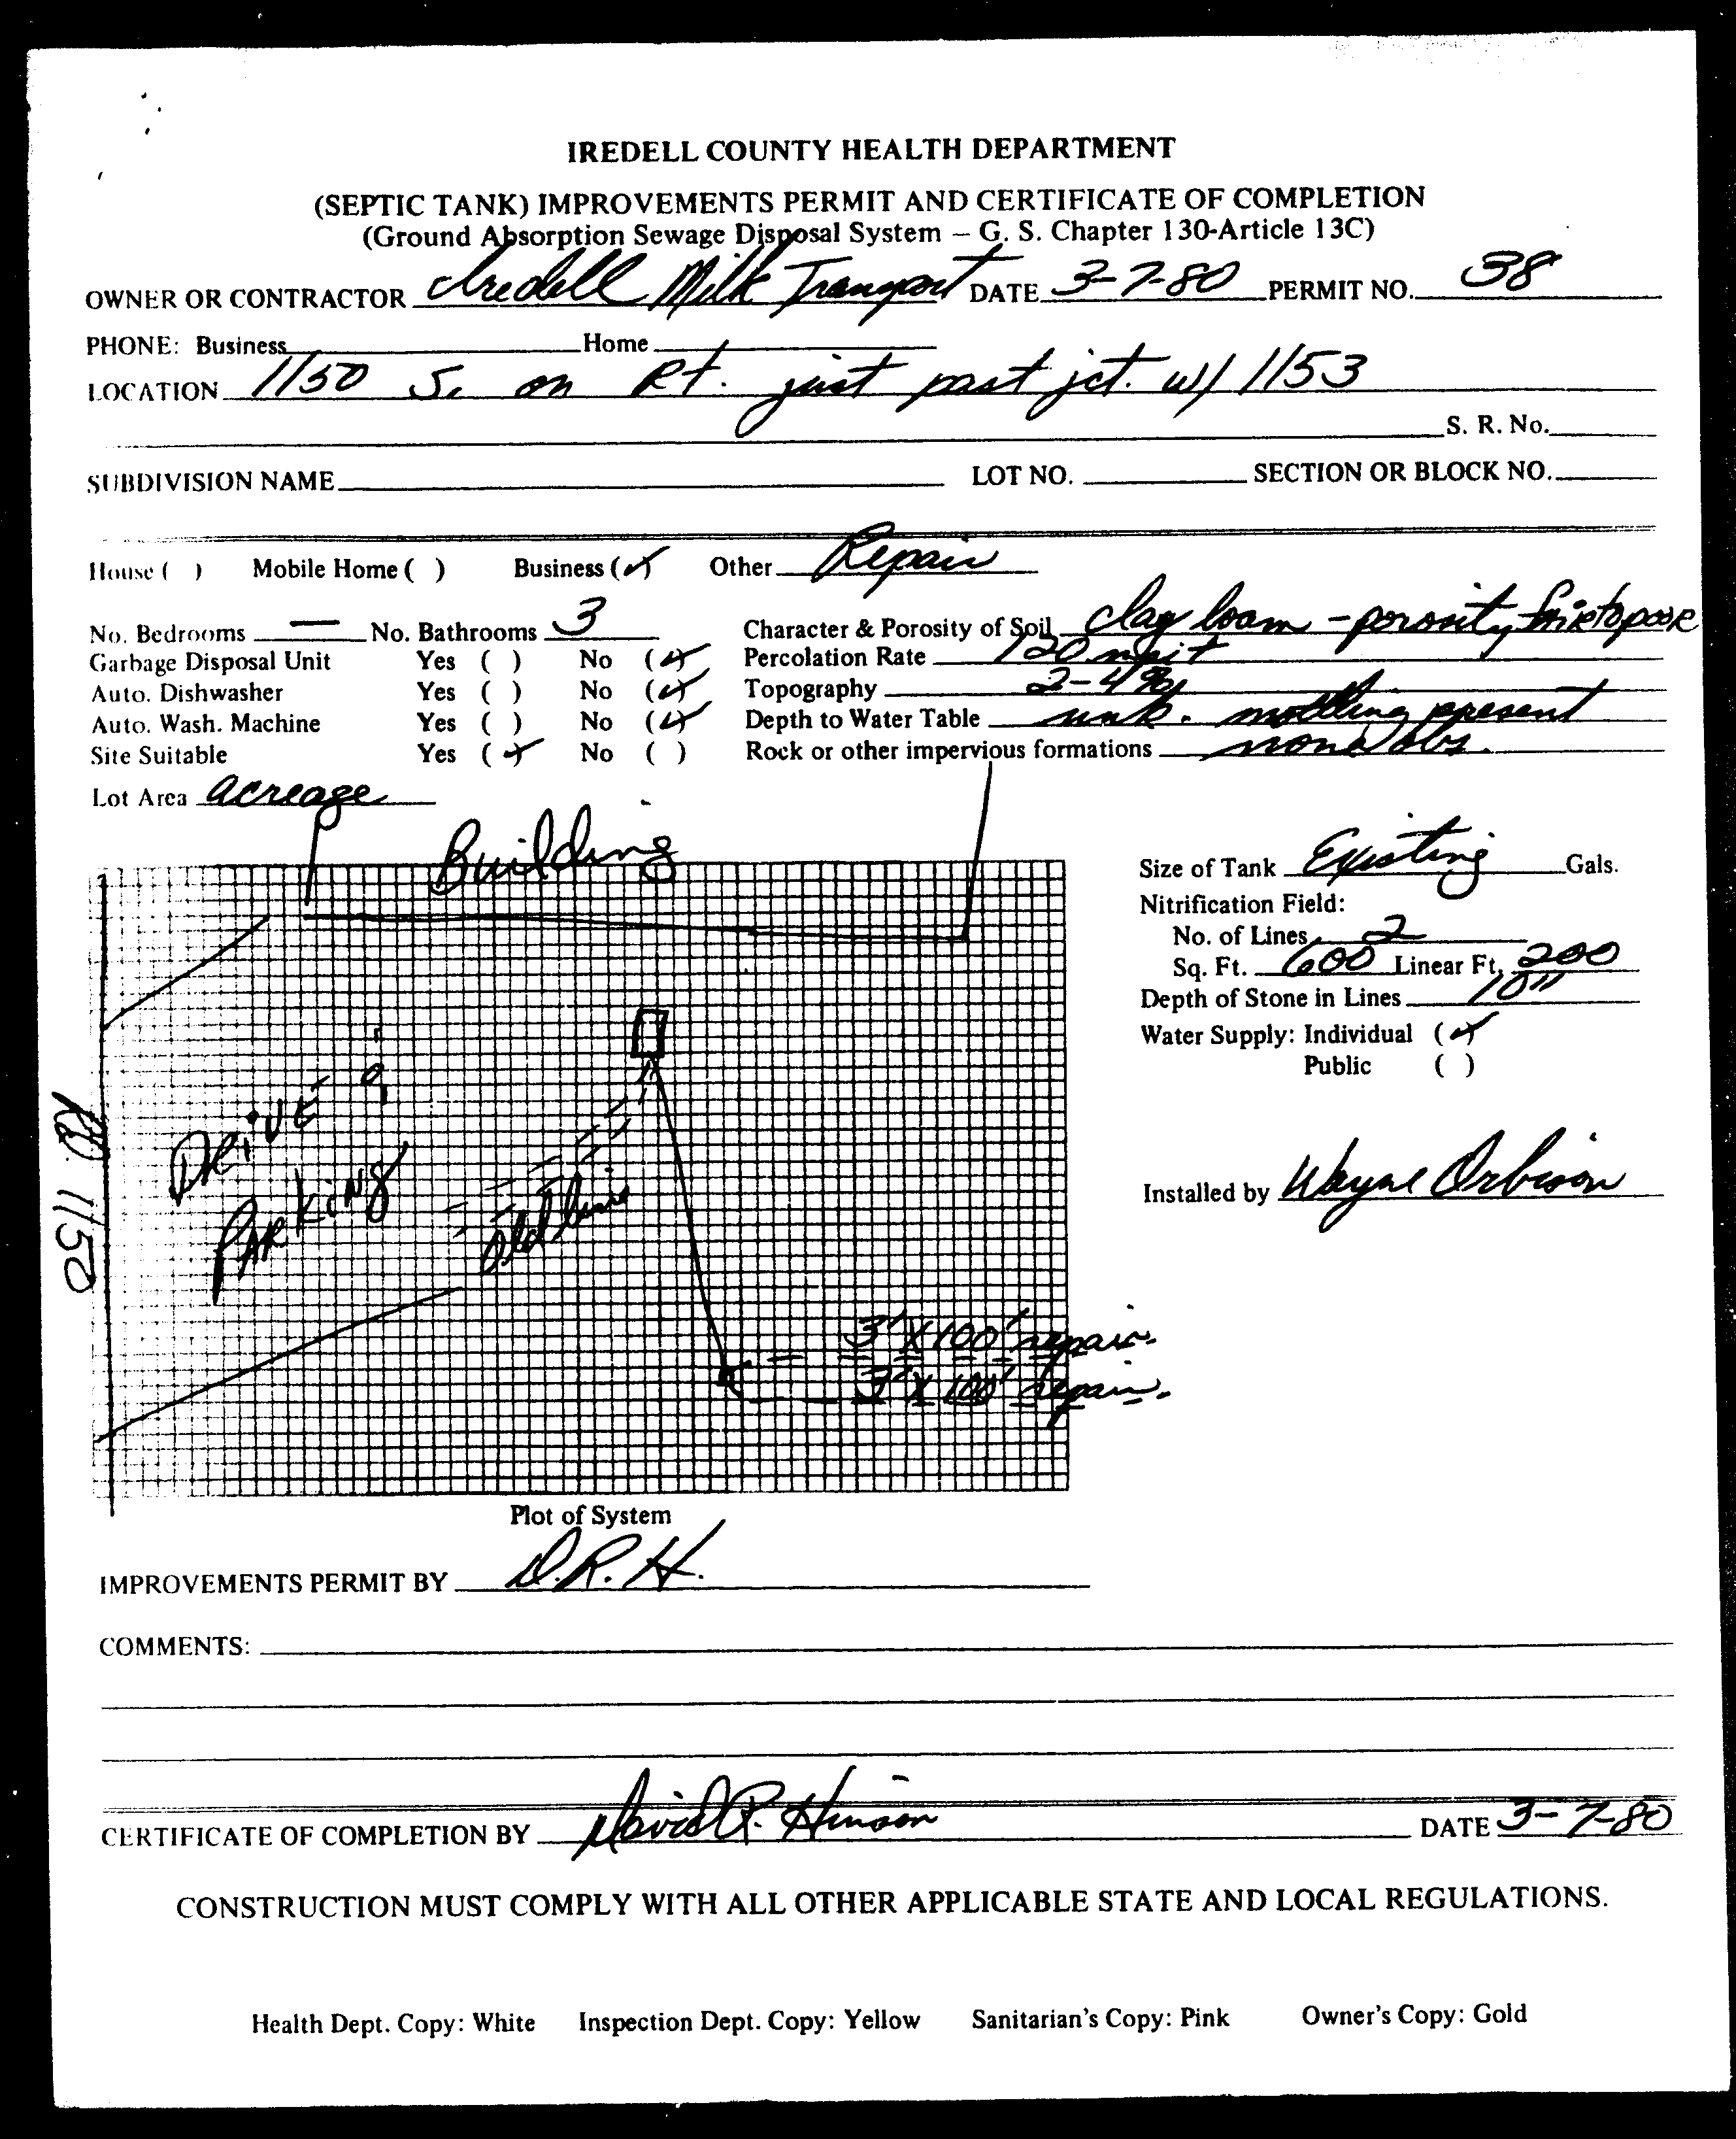 IREDELL COUNTY HEALTH DEPARTMENT
(SEPTIC TANK) IMPROVEMENTS PERMIT AND CERTIFICATE OF COMPLETION
(Ground Absorption Sewage Disposal System – G. S. Chapter 130-Article 13C)
OWNER OR CONTRACTOR Iredell Milk Transport DATE 3-7-80 PERMIT NO. 38
PHONE: Business Home
LOCATION 1150 S. on Rt. just past jct. w/ 1153
S. R. No.
SUBDIVISION NAME LOT NO. SECTION OR BLOCK NO.
House ( ) Mobile Home ( ) Business (✓) Other Repair
No. Bedrooms — No. Bathrooms 3 Character & Porosity of Soil clay loam - porosity fair to poor
Garbage Disposal Unit Yes ( ) No (✓) Percolation Rate 120
Auto. Dishwasher Yes ( ) No (✓) Topography 2-4%
Auto. Wash. Machine Yes ( ) No (✓) Depth to Water Table unk. mottling present
Site Suitable Yes (✓) No ( ) Rock or other impervious formations none obs.
Lot Area acreage
Building
Size of Tank Existing Gals.
Nitrification Field:
No. of Lines 2
Sq. Ft. 600 Linear Ft. 200
Depth of Stone in Lines 10"
Water Supply: Individual (✓)
Public ( )
Rd. 1150
DRIVE &
PARKING
old line
Installed by Wayne Orbison
3' X 100' repair
3' X 100' repair
Plot of System
IMPROVEMENTS PERMIT BY D.R.H.
COMMENTS:
CERTIFICATE OF COMPLETION BY David R. Hinson DATE 3-7-80
CONSTRUCTION MUST COMPLY WITH ALL OTHER APPLICABLE STATE AND LOCAL REGULATIONS.
Health Dept. Copy: White Inspection Dept. Copy: Yellow Sanitarian's Copy: Pink Owner's Copy: Gold